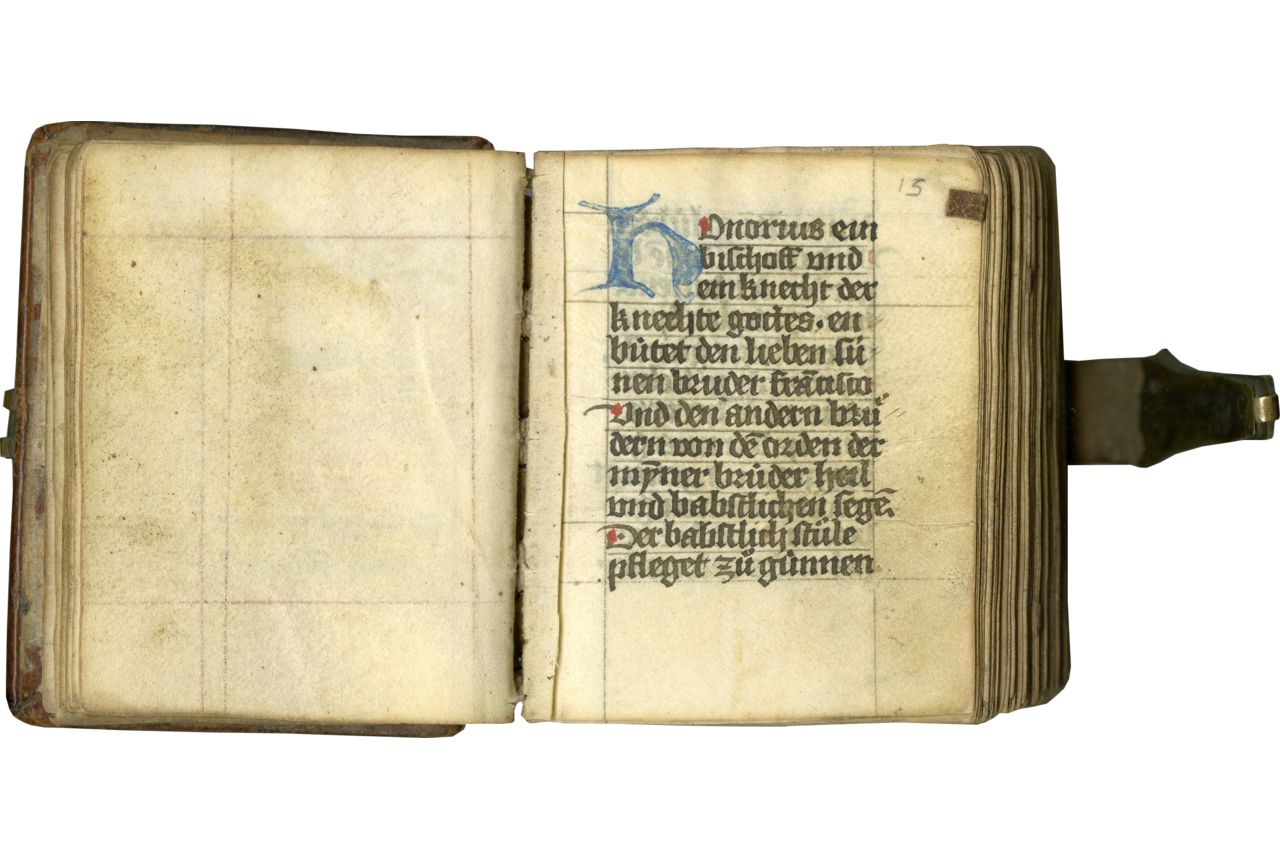 15
Honorius ein
bischoff vnd
ein knecht der
knechte gottes. en
bůtet den lieben sü
nen bruder francisco
Vnd den andern brů
dern von dē orden der
mȳner brůder heil
vnd babstlichen segē.
Der babstlich stůle
pfleget zů günnen